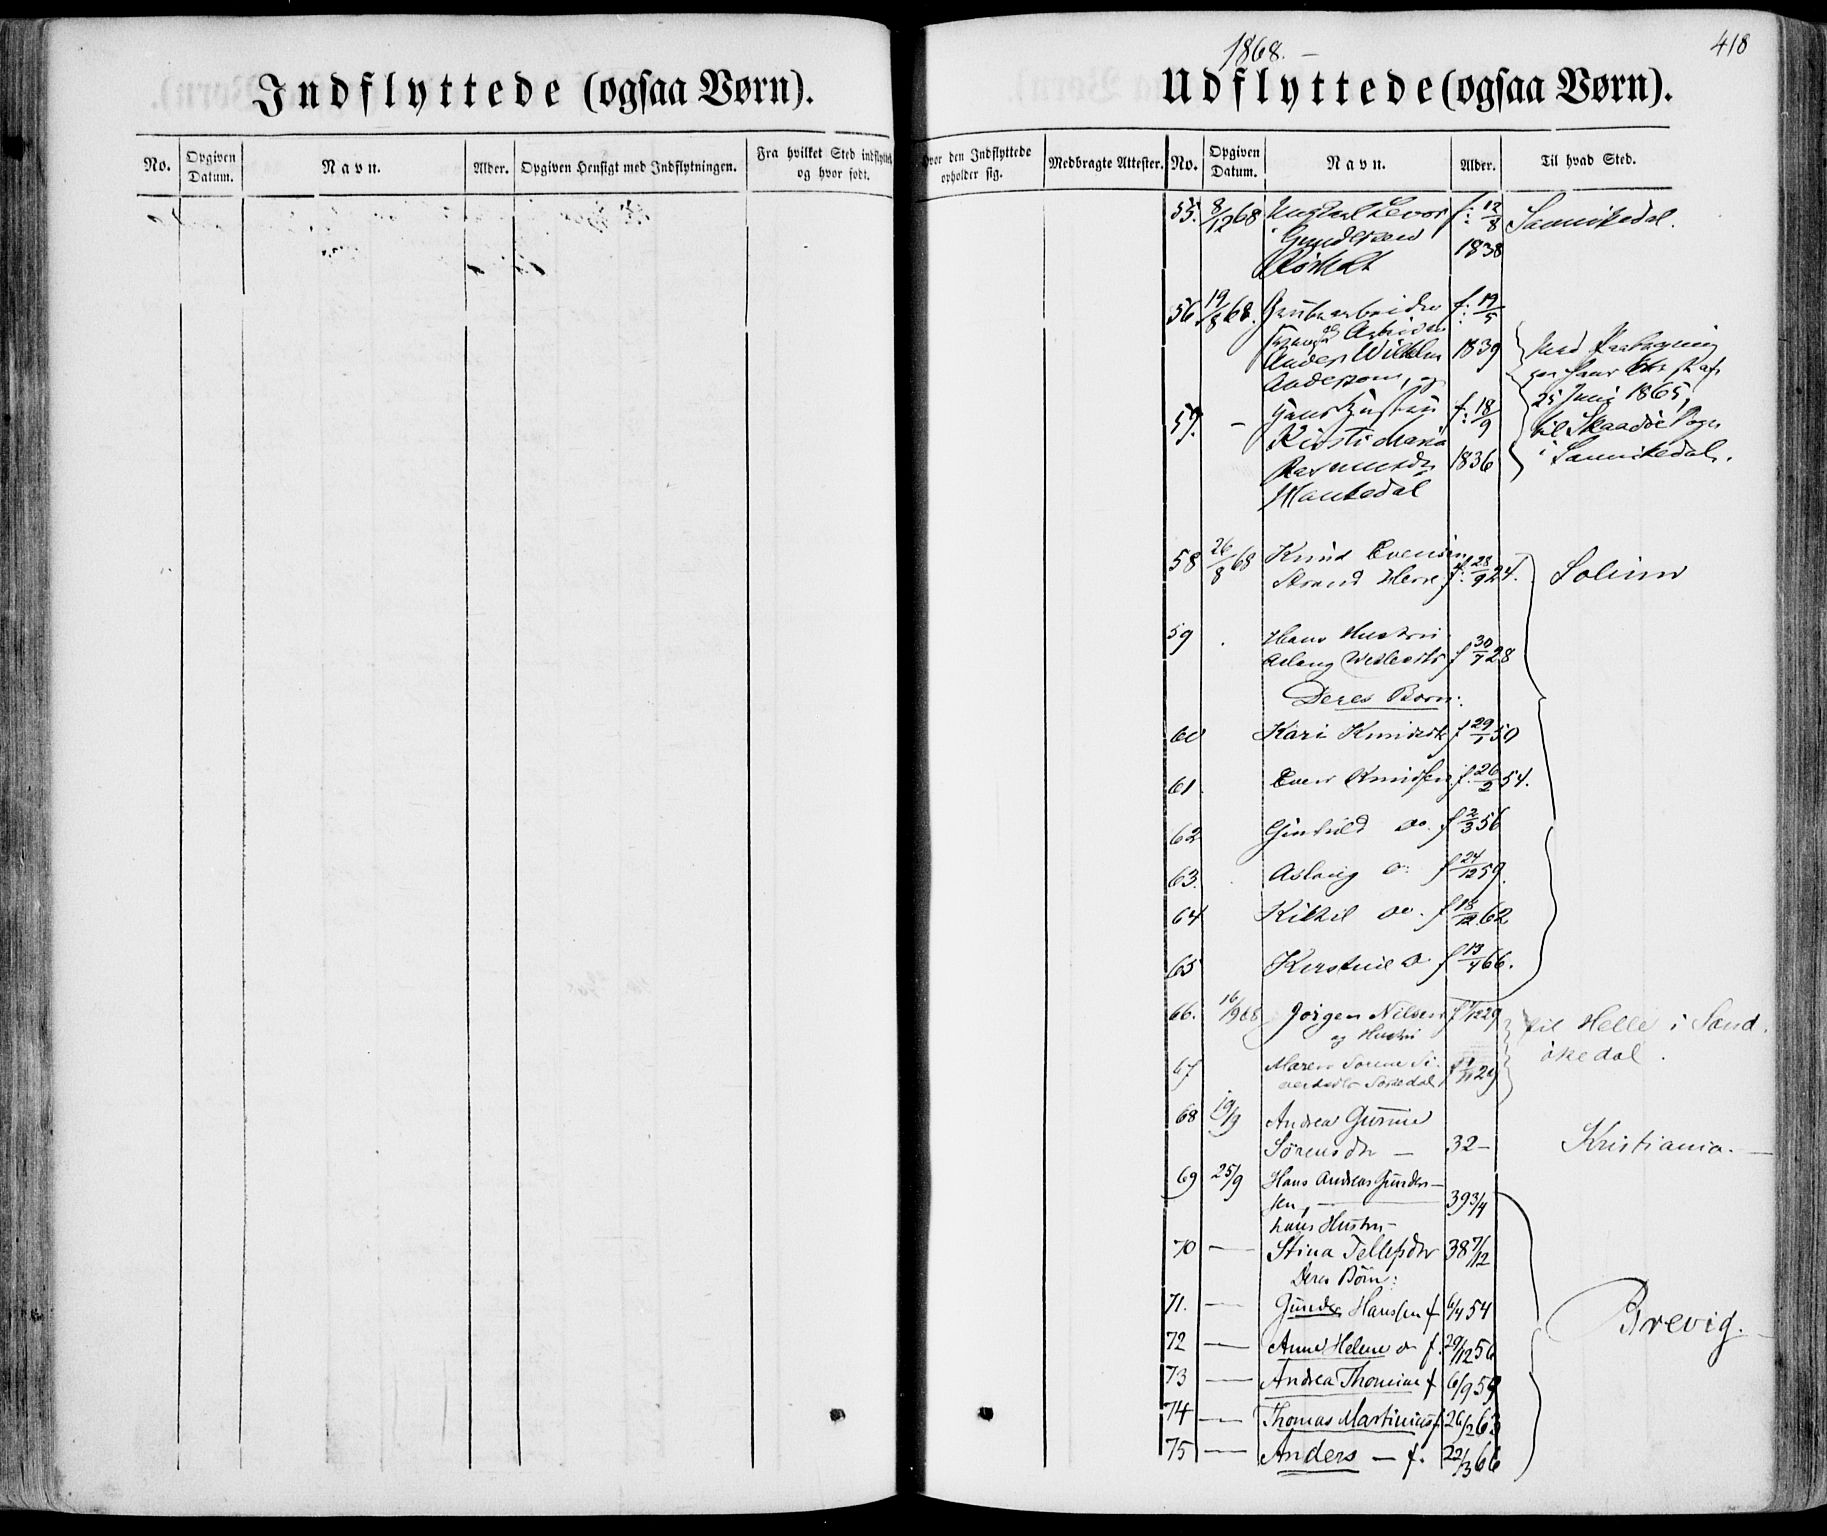 Indflyttede (ogsaa Børn).
No.
Opgiven Datum.
Navn.
Alder.
Opgiven Hensigt med Indflytningen.
Fra hvilket Sted indflyttet og hvor født.
1868. -
418
Udflyttede (ogsaa Børn).
Hvor den Indflyttede opholder sig.
Medbragte Attester.
No.
Opgiven Datum.
Navn.
Alder.
Til hvad Sted.
55. 8/12 68 Levor f: 12/8 Sannikedal.
Gundersen 1838
56 19/8 68. Grubearbeider f: 19/5
Anders Wilhelm 1839
Andersson, og
25 Juni 1865,
57. - Hans Hustru f: 18/9 til Skaadøe
Kirsti Maria i Sannikedal.
Rasmusdr 1836
58 26/8 68 Knud Evensen
Strand Herre f: 28/9 24. Solum
59 Hans Hustru
Aslaug f 30/7 28
Deres Børn:
60 Kari Knudsdtr f 29/1 50
61 Even Knudsen f. 26/2 54.
62 Gunhild do. f 2/3 56
63. Aslaug do f 24/12 59.
64 Kittil do. f 18/12 62
65 do f 13/4 66.
66. 16/9 68 Jørgen Nilsen f 1/12 29 til Helle i Sand-
og Hustru økedal.
67 Maren Si-
vertsdtr 29
68 19/9 Andrea Gurine
Sørensdtr - 32 - Kristiania. -
69 25/9 Hans Andreas Gunder-
sen, - 39 3/4
hans Hustru -
70 - Stina Tellefsdtr 38 7/12
Deres Børn:
71. - Gunder Hanssen f 6/4 54 Brevig. -
72 - Anne Helene do f. 29/12 56
73 - Andrea Thomine f 6/9 59
74 - Thomas Martinius f 26/2 63
75 - Anders - f. 22/3 66